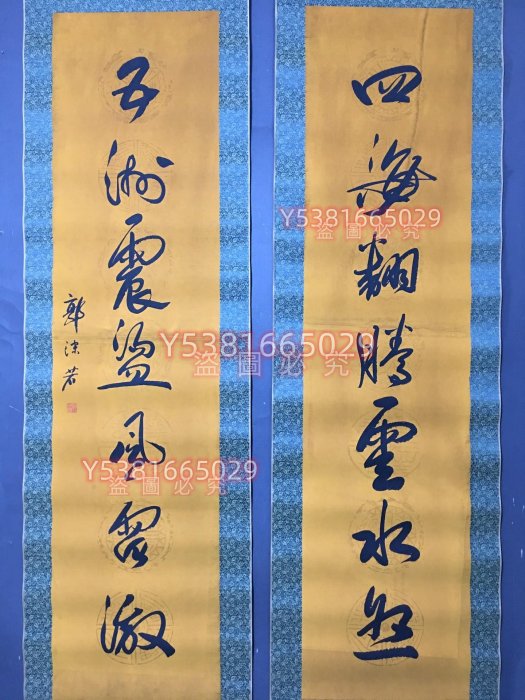 四海翻騰雲水怒
五洲震盪風雷激
郭沫若
Y5381665029
盜圖必究
Y5381665029
盜圖必究
Y5381665029
盜圖必究